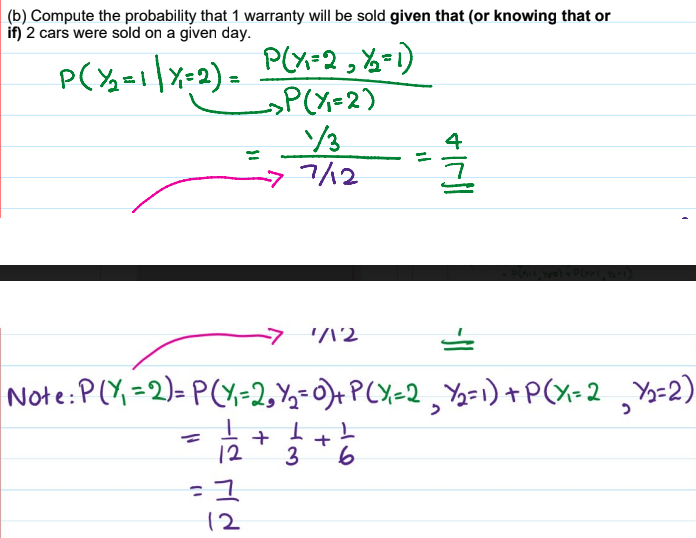 (b) Compute the probability that 1 warranty will be sold given that (or knowing that or
if) 2 cars were sold on a given day.
P(Y₂=1 | Y₁=2) = P(Y₁=2, Y₂=1)
P(Y₁=2)
= 1/3 = 4
7/12 7
7/12
Note: P(Y₁=2) = P(Y₁=2, Y₂=0) + P(Y₁=2, Y₂=1) + P(Y₁=2, Y₂=2)
= 1/12 + 1/3 + 1/6
= 7/12